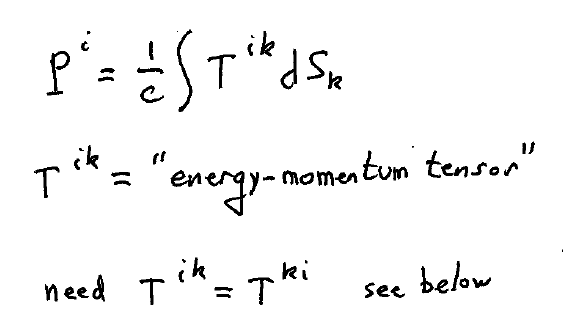 Pⁱ = 1/c ∫ Tⁱᵏ dSₖ
Tⁱᵏ = "energy-momentum tensor"
need Tⁱᵏ = Tᵏⁱ see below